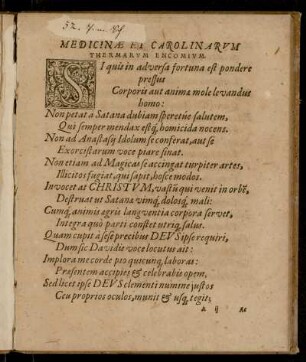 MEDICINÆ ET CAROLINARVM
THERMARVM ENCOMIVM.
SI quis in adversa fortuna est pondere
pressus
Corporis aut animæ mole levandus
homo:
Non petat a Satana dubiam speretve salutem,
Qui semper mendax estq́; homicida nocens.
Non ad Anastasŷ Idolum se conferat, aut se
Exorcistarum voce piare sinat.
Non etiam ad Magicas se accingat turpiter artes,
Illicitos fugiat, qui sapit, hosce modos.
Invocet at CHRISTVM, vastũ qui venit in orbẽ,
Destruat ut Satanæ vimq́; dolosq́; mali:
Cumq́; animis ægris languentia corpora servet,
Integra quò parti constet utriq́; salus.
Quam cupit à sese precibus DEVS ipse requiri,
Dum sic Davidis voce locutus ait:
Implora me corde pio quicunq́; laboras:
Præsentem accipies & celebrabis opem.
Sed licet ipse DEVS clementi numine justos
Ceu proprios oculos, munit & usq́; tegit;
A ij